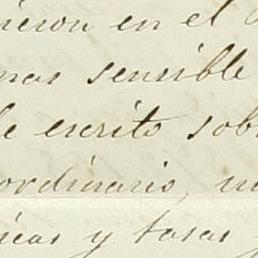 nieron en el
mas sensible
de escrito sob
ordinario,
icas y tosas